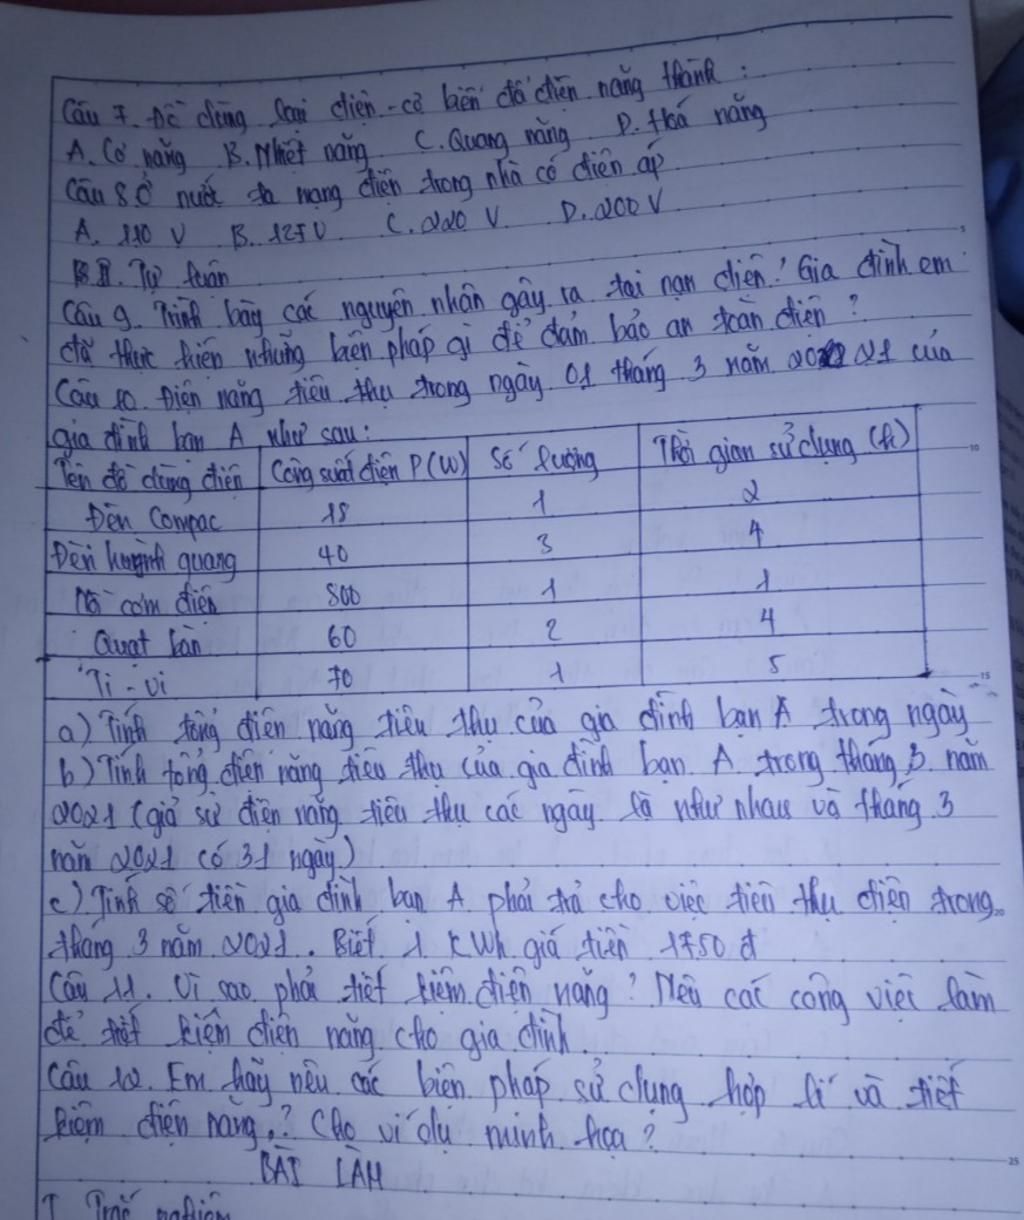 Câu 7. Đồ dùng loại điện - cơ biến đổi điện năng thành :
A. Cơ năng B. Nhiệt năng C. Quang năng D. Hoá năng
Câu 8 Ở nước ta mạng điện trong nhà có điện áp
A. 110 V B. 127 V C. 220 V D. 200 V
II. Tự luận
Câu 9. Trình bày các nguyên nhân gây ra tai nạn điện? Gia đình em
đã thực hiện những biện pháp gì để đảm bảo an toàn điện ?
Câu 10. Điện năng tiêu thụ trong ngày 01 tháng 3 năm 2021 của
gia đình bạn A như sau:
Tên đồ dùng điện Công suất điện P(W) Số lượng Thời gian sử dụng (h)
Đèn Compac 18 1 2
Đèn huỳnh quang 40 3 4
Nồi cơm điện 800 1 1
Quạt bàn 60 2 4
Ti - vi 70 1 5
a) Tính tổng điện năng tiêu thụ của gia đình bạn A trong ngày
b) Tính tổng điện năng tiêu thụ của gia đình bạn A trong tháng 3 năm
2021 (giả sử điện năng tiêu thụ các ngày là như nhau và tháng 3
năm 2021 có 31 ngày)
c) Tính số tiền gia đình bạn A phải trả cho việc tiêu thụ điện trong
tháng 3 năm 2021. Biết 1 KWh giá tiền 1750 đ
Câu 11. Vì sao phải tiết kiệm điện năng? Nêu các công việc làm
để tiết kiệm điện năng cho gia đình.
Câu 12. Em hãy nêu các biện pháp sử dụng hợp lí và tiết
kiệm điện năng.? Cho ví dụ minh họa ?
BÀI LÀM
I Trắc nghiệm